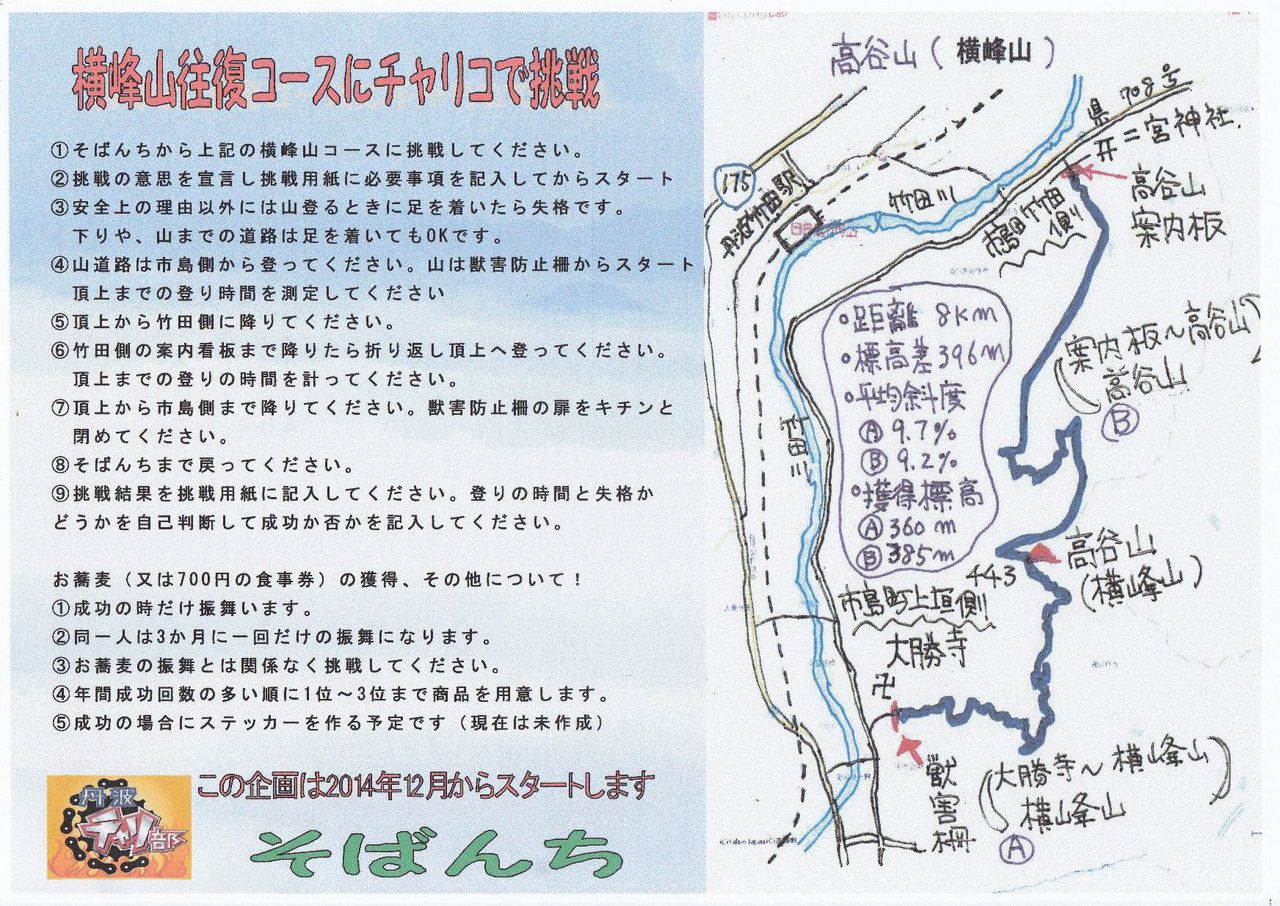 横峰山往復コースにチャリコで挑戦
①そばんちから上記の横峰山コースに挑戦してください。
②挑戦の意思を宣言し挑戦用紙に必要事項を記入してからスタート
③安全上の理由以外には山登るときに足を着いたら失格です。
下りや、山までの道路は足を着いてもOKです。
④山道路は市島側から登ってください。山は獣害防止柵からスタート
頂上までの登り時間を測定してください
⑤頂上から竹田側に降りてください。
⑥竹田側の案内看板まで降りたら折り返し頂上へ登ってください。
頂上までの登りの時間を計ってください。
⑦頂上から市島側まで降りてください。獣害防止柵の扉をキチンと
閉めてください。
⑧そばんちまで戻ってください。
⑨挑戦結果を挑戦用紙に記入してください。登りの時間と失格か
どうかを自己判断して成功か否かを記入してください。
お蕎麦（又は700円の食事券）の獲得、その他について！
①成功の時だけ振舞います。
②同一人は3か月に一回だけの振舞になります。
③お蕎麦の振舞とは関係なく挑戦してください。
④年間成功回数の多い順に1位～3位まで商品を用意します。
⑤成功の場合にステッカーを作る予定です（現在は未作成）
この企画は2014年12月からスタートします
丹波
チャリ部
そばんち
高谷山（横峰山）
県708号
开二宮神社
175
丹波竹田駅
竹田川
市島町竹田
側
高谷山
案内板
・距離 8km
・標高差396m
・平均斜度
Ⓐ 9.7%
Ⓑ 9.2%
・獲得標高
Ⓐ 360m
Ⓑ 385m
(案内板～高谷山)
高谷山
Ⓑ
竹田川
高谷山
(横峰山)
443
市島町上垣側
大勝寺
卍
獣害柵
(大勝寺～横峰山)
横峰山
Ⓐ